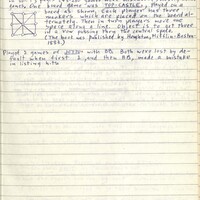 board game was TOP-CASTLE, played on a
board as shown. Each player had three
markers which are placed on the board al-
ternately, then in turn players move one
space along a line. Object is to get three
in a row passing thru the central space.
(The book was published by Houghton, Mifflin-Boston-
Played 2 games of with Both were lost by de-
fault when first I, and then made a mistake
in listing hits